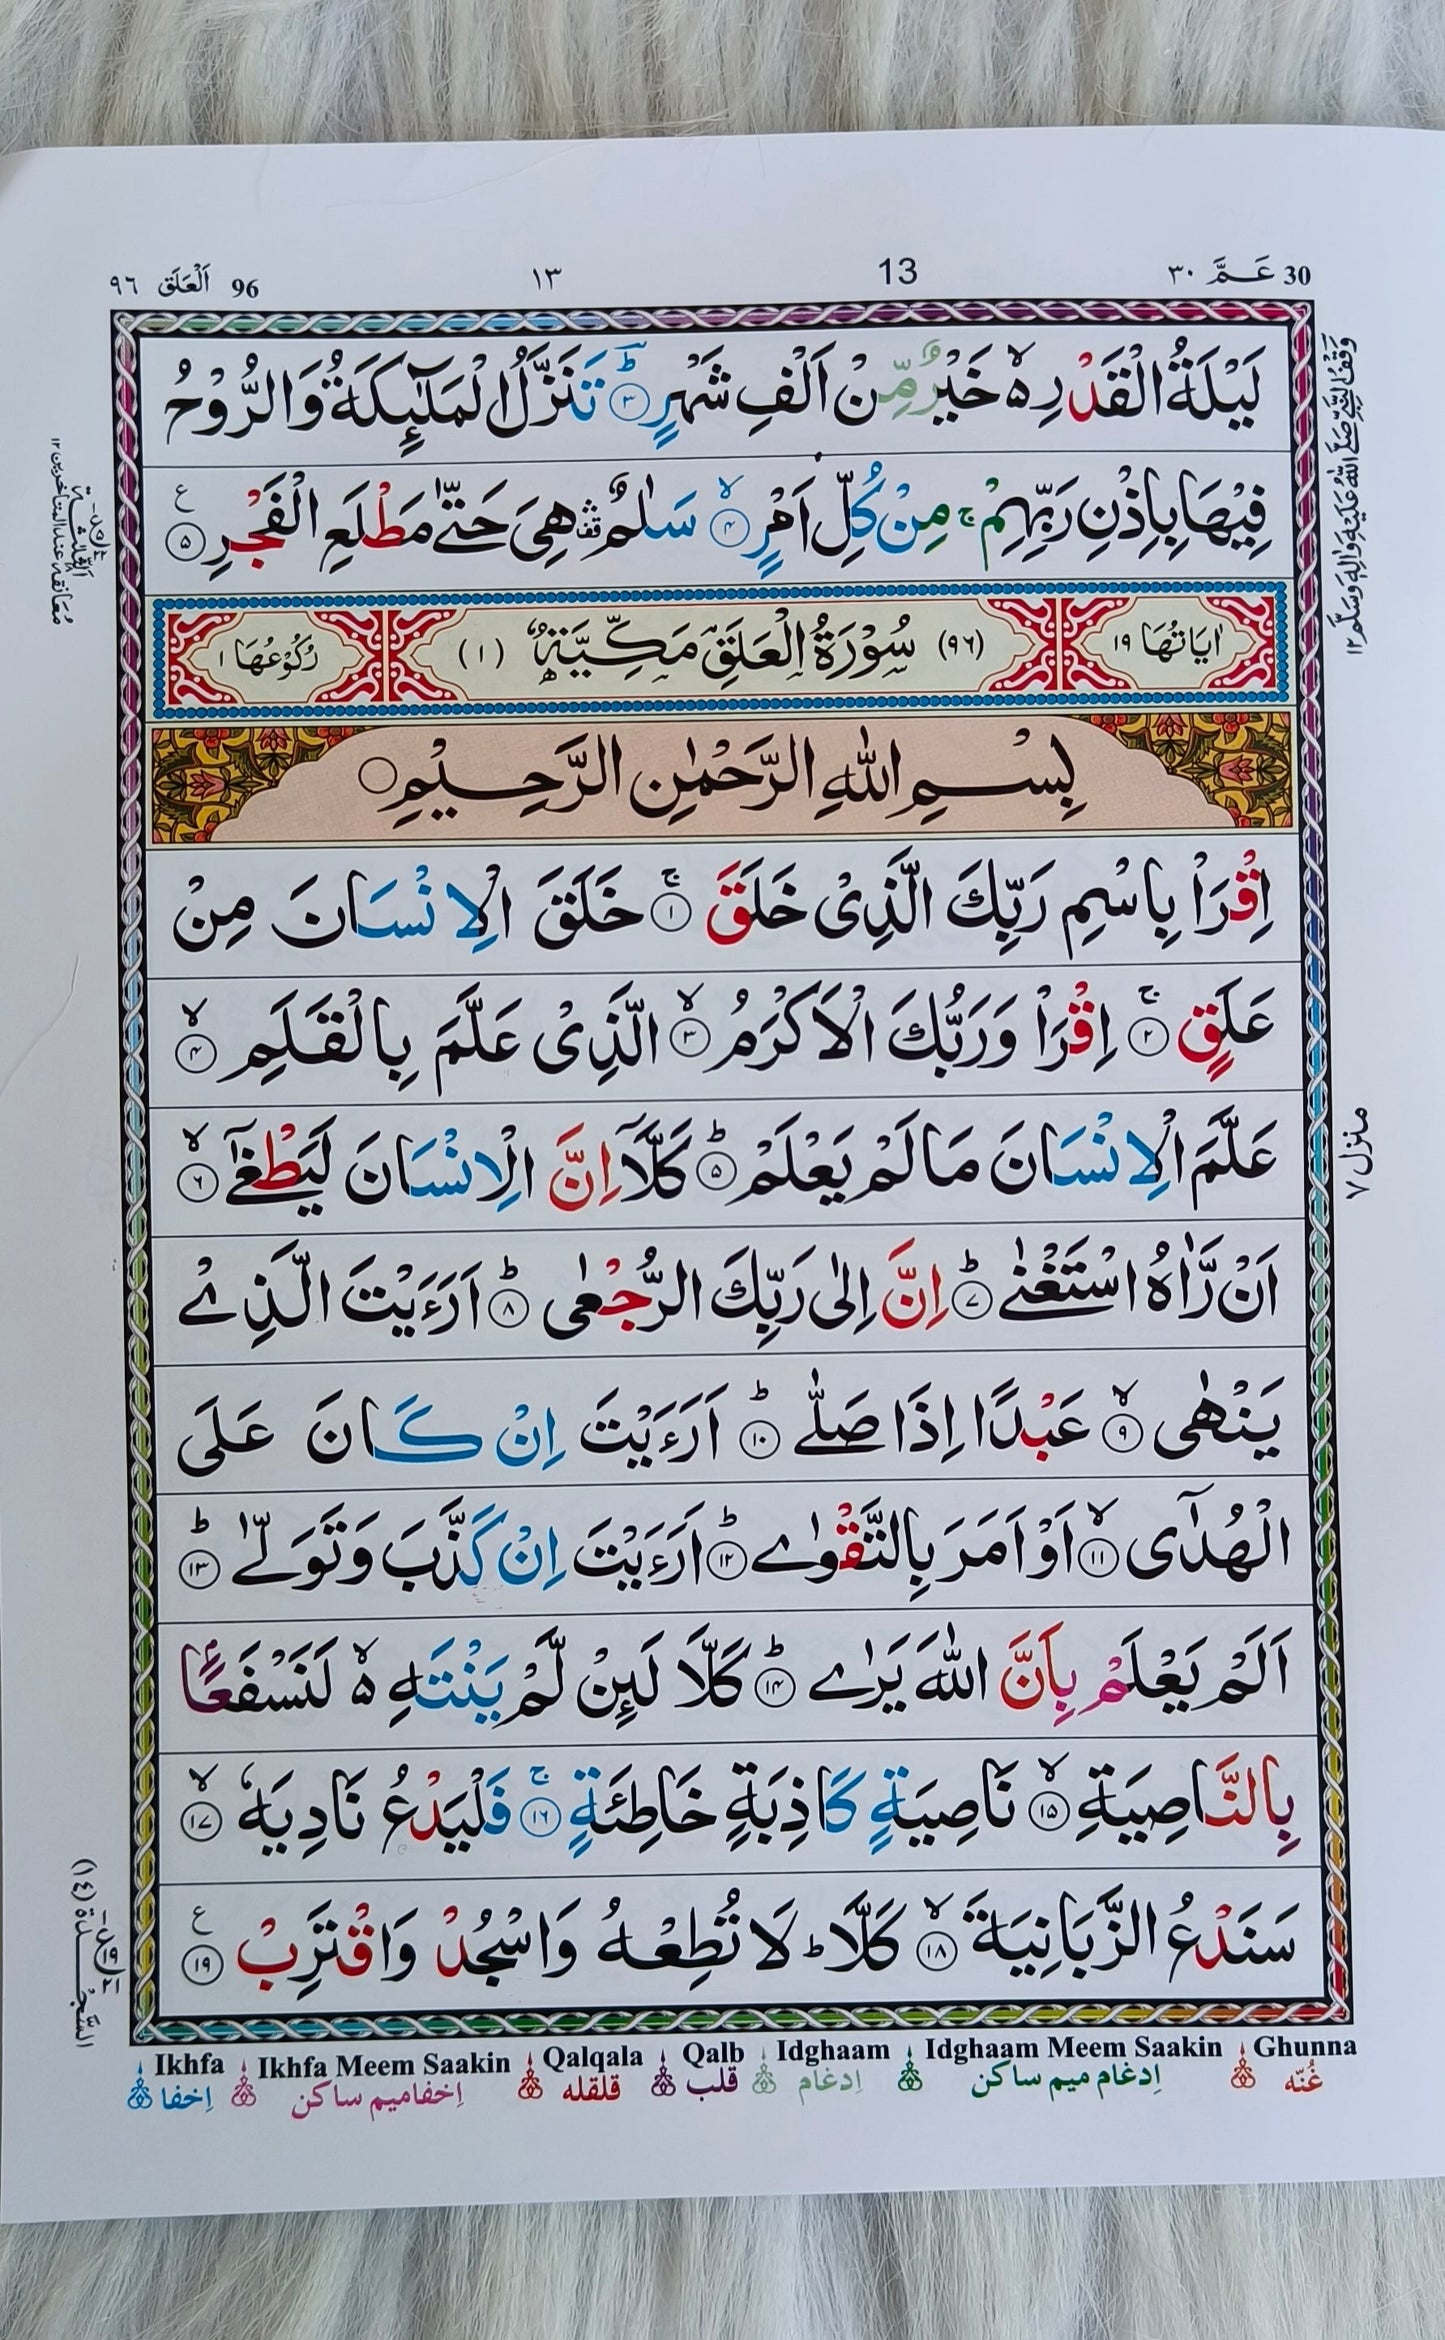 30 عَـمَّ ٣٠
13
١٣
96 اَلْعَلَق ٩٦
لَيْلَةُ الْقَدْرِ ۙ۵ خَيْرٌ مِّنْ اَلْفِ شَهْرٍ ؕ﴿۳﴾ تَنَزَّلُ الْمَلٰٓئِكَةُ وَالرُّوْحُ
فِيْهَا بِاِذْنِ رَبِّهِمْ ۚ مِنْ كُلِّ اَمْرٍ ۙ﴿۴﴾ سَلٰمٌ ۛ هِىَ حَتّٰى مَطْلَعِ الْفَجْرِ ﴿۵﴾ ع
اٰيَاتُهَا ١٩
(٩٦) سُوْرَةُ الْعَلَقِ مَكِّيَّةٌ (١)
رُكُوْعُهَا ١
بِسْمِ اللّٰهِ الرَّحْمٰنِ الرَّحِيْمِ
اِقْرَاْ بِاسْمِ رَبِّكَ الَّذِىْ خَلَقَ ۚ﴿۱﴾ خَلَقَ الْاِنْسَانَ مِنْ
عَلَقٍ ۚ﴿۲﴾ اِقْرَاْ وَرَبُّكَ الْاَكْرَمُ ۙ﴿۳﴾ الَّذِىْ عَلَّمَ بِالْقَلَمِ ۙ﴿۴﴾
عَلَّمَ الْاِنْسَانَ مَا لَمْ يَعْلَمْ ؕ﴿۵﴾ كَلَّاۤ اِنَّ الْاِنْسَانَ لَيَطْغٰٓى ۙ﴿۶﴾
اَنْ رَّاٰهُ اسْتَغْنٰى ؕ﴿۷﴾ اِنَّ اِلٰى رَبِّكَ الرُّجْعٰى ؕ﴿۸﴾ اَرَءَيْتَ الَّذِىْ
يَنْهٰى ۙ﴿۹﴾ عَبْدًا اِذَا صَلّٰى ؕ﴿۱۰﴾ اَرَءَيْتَ اِنْ كَانَ عَلَى
الْهُدٰٓى ۙ﴿۱۱﴾ اَوْ اَمَرَ بِالتَّقْوٰى ؕ﴿۱۲﴾ اَرَءَيْتَ اِنْ كَذَّبَ وَتَوَلّٰى ؕ﴿۱۳﴾
اَلَمْ يَعْلَمْ بِاَنَّ اللّٰهَ يَرٰى ؕ﴿۱۴﴾ كَلَّا لَئِنْ لَّمْ يَنْتَهِ ۙ۵ لَنَسْفَعًۢا
بِالنَّاصِيَةِ ۙ﴿۱۵﴾ نَاصِيَةٍ كَاذِبَةٍ خَاطِئَةٍ ۚ﴿۱۶﴾ فَلْيَدْعُ نَادِيَهٗ ۙ﴿۱۷﴾
سَنَدْعُ الزَّبَانِيَةَ ۙ﴿۱۸﴾ كَلَّا ؕ لَا تُطِعْهُ وَاسْجُدْ وَاقْتَرِبْ ﴿۱۹﴾ ع
وَقْفُ النَّبِيِّ صَلَّى اللّٰهُ عَلَيْهِ وَاٰلِهٖ وَسَلَّمَ ١٢
منزل ٧
السَّجْدَة (١٤)
Ikhfa Ikhfa Meem Saakin Qalqala Qalb Idghaam Idghaam Meem Saakin Ghunna
غُنّه اِدغام میم ساکن اِدغام قلب قلقله اِخفامیم ساکن اِخفا